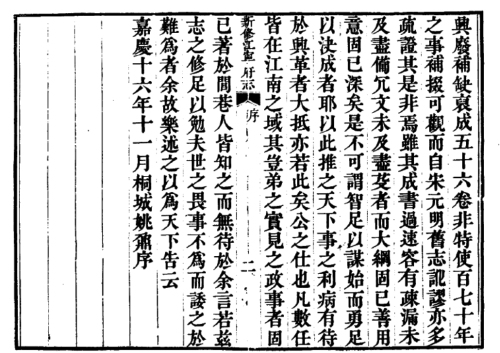 興廢補缺裒成五十六卷非特使百七十年
之事補掇可觀而自朱元明舊志訛謬亦多
疏證其是非焉雖其成書過速容有疎漏未
及盡備冗文未及盡芟者而大綱固已善用
意固已深矣是不可謂智足以謀始而勇足
以決成者耶以此推之天下事之利病有待
於興革者大抵亦若此矣公之仕也凡數任
新修江寧府志
序
二
皆在江南之域其豈弟之實見之政事者固
已著於閭巷人皆知之而無待於余言若茲
志之修足以勉夫世之畏事不為而諉之於
難為者余故樂述之以為天下告云
嘉慶十六年十一月桐城姚鼐序